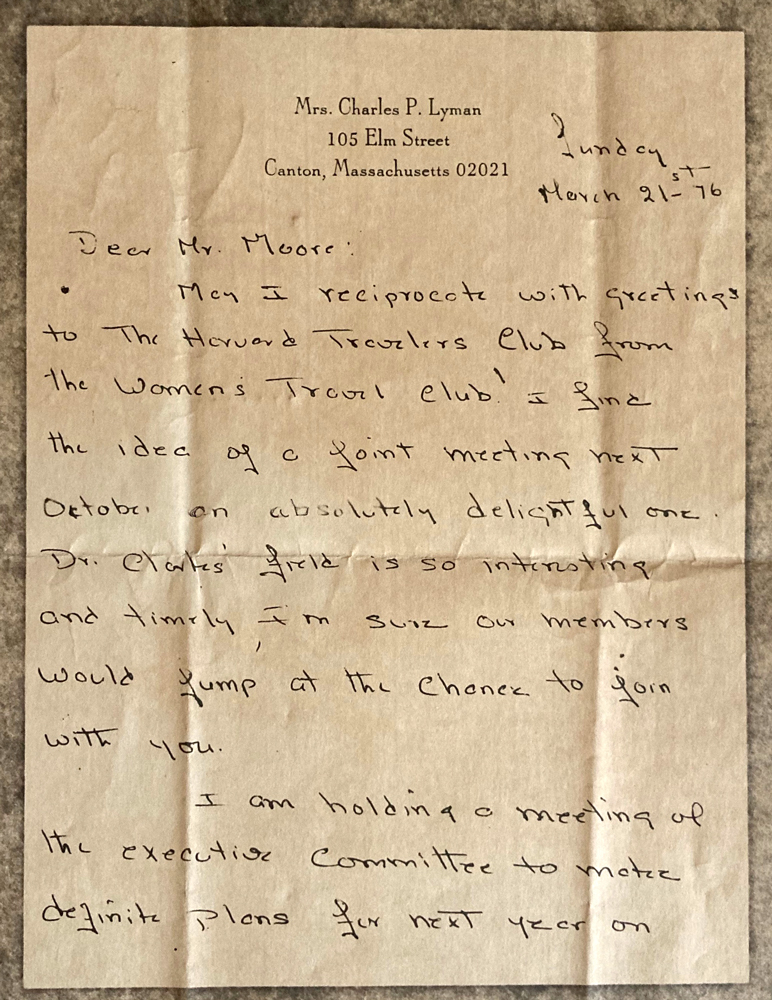 Mrs. Charles P. Lyman
105 Elm Street
Canton, Massachusetts 02021
Sunday
March 21st- 76
Dear Mr. Moore:
May I reciprocate with greetings
to The Harvard Travelers Club from
the Women's Travel Club! I find
the idea of a joint meeting next
October an absolutely delightful one.
Dr. Clarks' field is so interesting
and timely, I'm sure our members
would jump at the chance to join
with you.
I am holding a meeting of
the executive Committee to make
definite plans for next year on